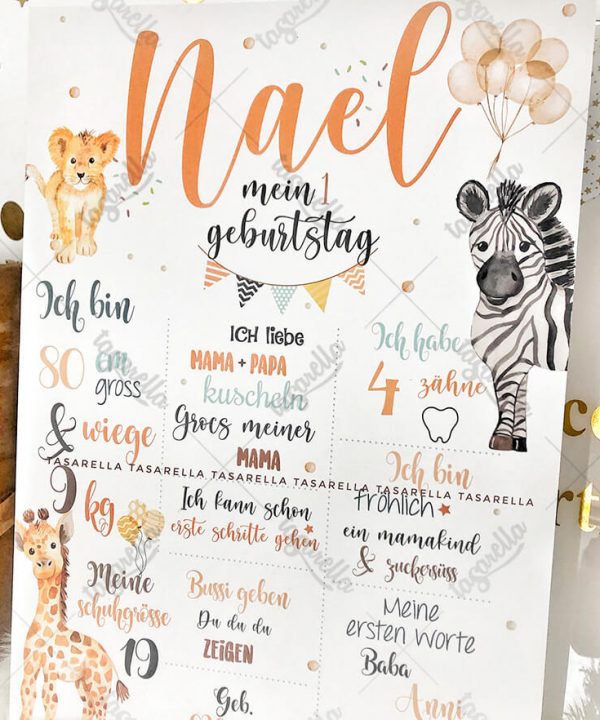 Nael
mein 1
geburtstag
Ich bin
80 cm
gross
& wiege
9 kg
Meine
schuhgrösse
19
ICH liebe
MAMA + PAPA
kuscheln
Grocs meiner
MAMA
Ich kann schon
erste schritte gehen
Bussi geben
Du du du
ZEIGEN
Geb.
Ich habe
4 zähne
Ich bin
fröhlich
ein mamakind
& zuckersüss
Meine
ersten Worte
Baba
Anni
TASARELLA TASARELLA TASARELLA TASARELLA TASARELLA TASARELLA
tasarella